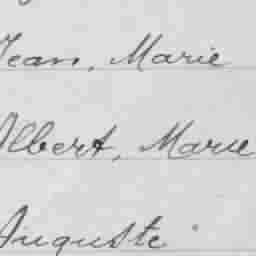 Jean, Marie
Albert, Marie
Auguste